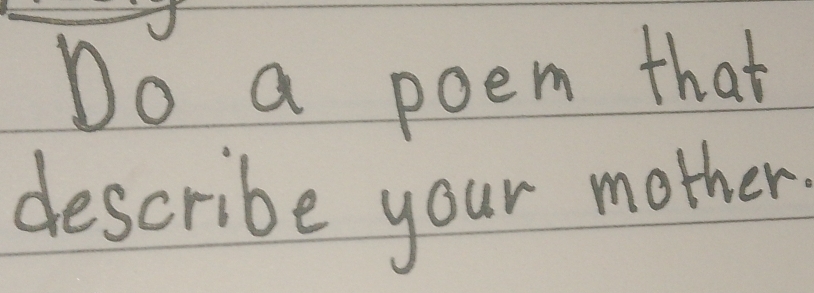 Do a poem that
describe your mother.